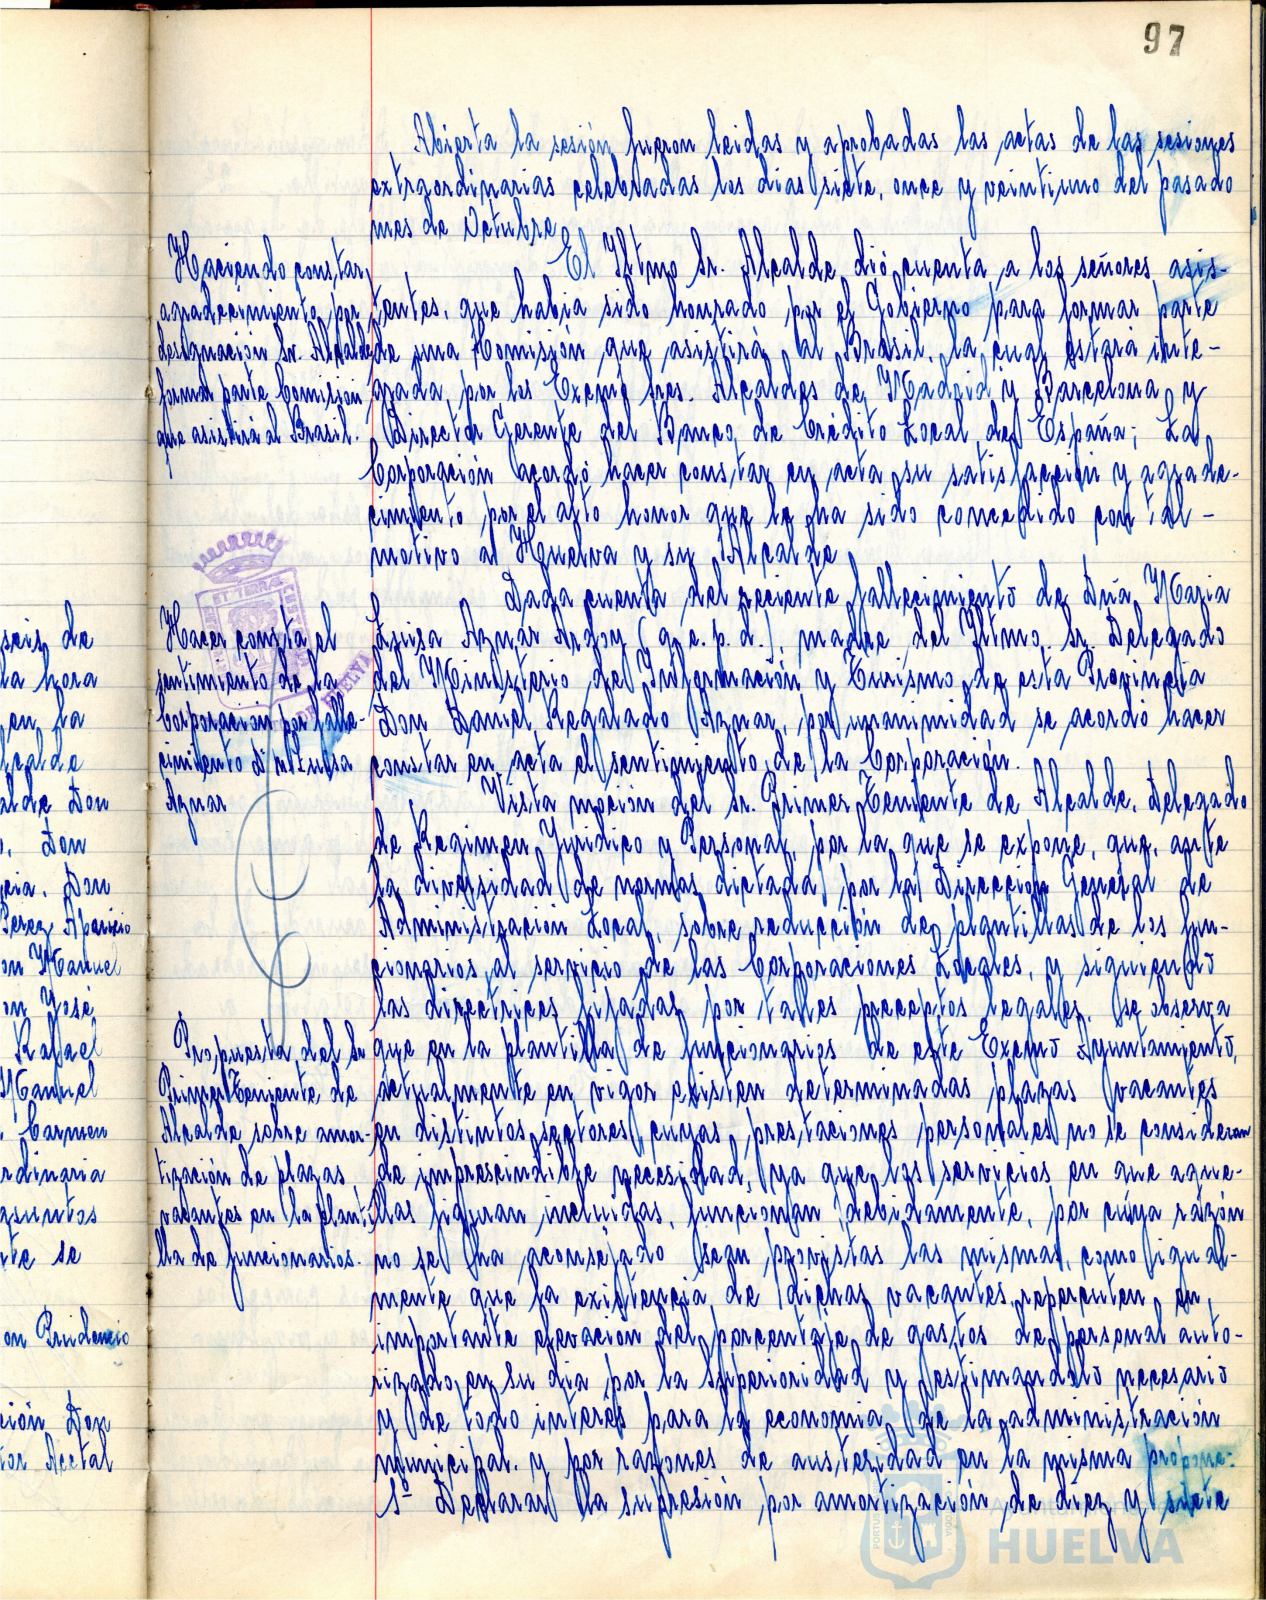 97
Abierta la sesión fueron leidas y aprobadas las actas de las sesiones
extraordinarias celebradas los dias siete, once y veintiuno del pasado
mes de Octubre
Haciendo constar
agradecimiento por
designación Sr. Alcalde
formar parte Comisión
que asistirá al Brasil.
El Iltmo Sr. Alcalde dió cuenta a los señores asis-
tentes, que habia sido honrado por el Gobierno para formar parte
de una Comisión que asistirá al Brasil, la cual estará inte-
grada por los Excmos Sres. Alcaldes de Madrid y Barcelona y
Director Gerente del Banco de Crédito Local de España; La
Corporación acordó hacer constar en acta su satisfacción y agrade-
cimiento por el alto honor que le ha sido concedido con tal-
motivo a Huelva y su Alcalde
Hacer consta el
sentimiento de la
Corporación por falle-
cimiento Dª Mª Luisa
Aznar
Dada cuenta del reciente fallecimiento de Dña Maria
Luisa Aznar (q.e.p.d.), madre del Iltmo. Sr. Delegado
del Ministerio de Información y Turismo de esta Provincia
Don Daniel Regalado Aznar, por unanimidad se acordó hacer
constar en acta el sentimiento de la Corporación.
Propuesta del Sr
Primer Teniente de
Alcalde sobre amor-
tización de plazas
vacantes en la planti-
lla de funcionarios.
Vista moción del Sr. Primer Teniente de Alcalde, Delegado
de Regimen Juridico y Personal, por la que se expone, que, ante
la diversidad de normas dictadas por la Dirección General de
Administración Local, sobre reducción de plantillas de los fun-
cionarios al servicio de las Corporaciones Locales, y siguiendo
las directrices fijadas por tales preceptos legales, se observa
que en la plantilla de funcionarios de este Excmo Ayuntamiento,
actualmente en vigor existen determinadas plazas vacantes
en distintos sectores cuyas prestaciones personales no se consideran
de imprescindible necesidad, ya que los servicios en que aque-
llas figuran incluidas, funcionan debidamente, por cuya razón
no se ha aconsejado sean provistas las mismas, como igual-
mente que la existencia de dichas vacantes repercuten en
importante elevación del porcentaje de gastos de personal auto-
rizado en su dia por la Superioridad y estimandolo necesario
y de todo interés para la economia de la administración
municipal y por razones de austeridad en la misma propone:
1º Declarar la supresión por amortización de diez y siete
seis de
la hora
en la
lcalde
alde Don
Don
cia. Don
Perez Aparicio
on Manuel
on José
Rafael
Manuel
Carmen
rdinaria
asuntos
nte se
on Prudencio
ción Don
tor Acctal
HUELVA